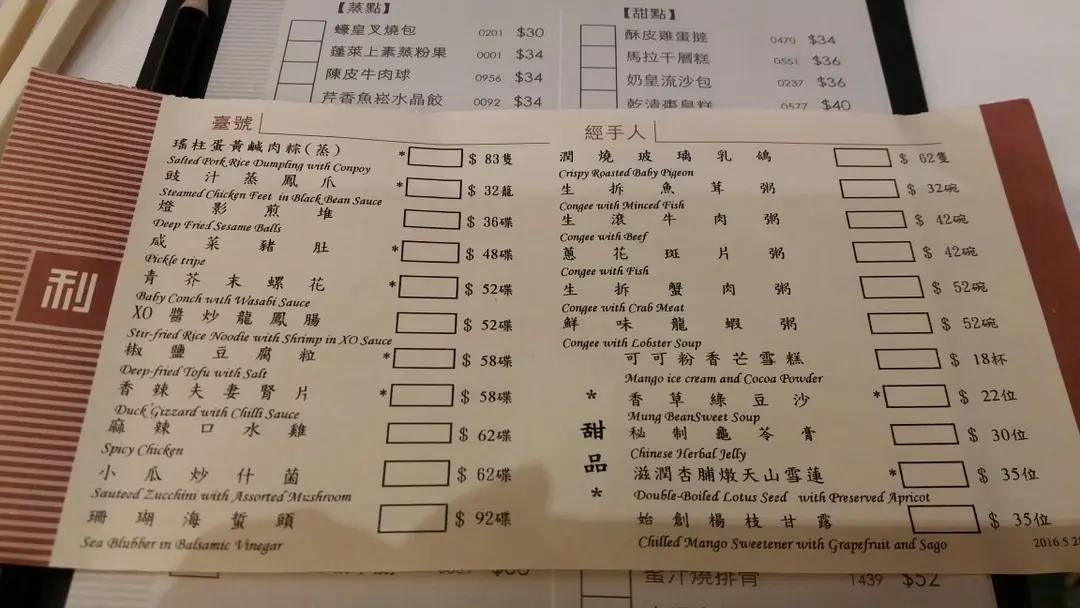 【蒸點】
蠔皇叉燒包 0201 $30
蓬萊上素蒸粉果 0001 $34
陳皮牛肉球 0956 $34
芹香魚崧水晶餃 0092 $34
【甜點】
酥皮雞蛋撻 0470 $34
馬拉千層糕 0551 $36
奶皇流沙包 0237 $36
0577 $40
利
臺號
瑤柱蛋黃鹹肉粽(蒸) * $ 83隻
Salted Pork Rice Dumpling with Conpoy
豉汁蒸鳳爪 * $ 32籠
Steamed Chicken Feet in Black Bean Sauce
燈影煎堆 $ 36碟
Deep Fried Sesame Balls
咸菜豬肚 * $ 48碟
Pickle tripe
青芥末螺花 * $ 52碟
Baby Conch with Wasabi Sauce
XO醬炒龍鳳腸 $ 52碟
Stir-fried Rice Noodle with Shrimp in XO Sauce
椒鹽豆腐粒 * $ 58碟
Deep-fried Tofu with Salt
香辣夫妻腎片 * $ 58碟
Duck Gizzard with Chilli Sauce
麻辣口水雞 $ 62碟
Spicy Chicken
小瓜炒什菌 $ 62碟
Sauteed Zucchini with Assorted Mushroom
珊瑚海蜇頭 $ 92碟
Sea Blubber in Balsamic Vinegar
經手人
潤燒玻璃乳鴿 $ 62隻
Crispy Roasted Baby Pigeon
生拆魚茸粥 $ 32碗
Congee with Minced Fish
生滾牛肉粥 $ 42碗
Congee with Beef
蔥花斑片粥 $ 42碗
Congee with Fish
生拆蟹肉粥 $ 52碗
Congee with Crab Meat
鮮味龍蝦粥 $ 52碗
Congee with Lobster Soup
*甜品*
可可粉香芒雪糕 $ 18杯
Mango ice cream and Cocoa Powder
香草綠豆沙 * $ 22位
Mung BeanSweet Soup
秘制龜苓膏 $ 30位
Chinese Herbal Jelly
滋潤杏脯燉天山雪蓮 * $ 35位
Double-Boiled Lotus Seed with Preserved Apricot
始創楊枝甘露 $ 35位
Chilled Mango Sweetener with Grapefruit and Sago
2016.5.28
蜜汁燒排骨 1439 $52